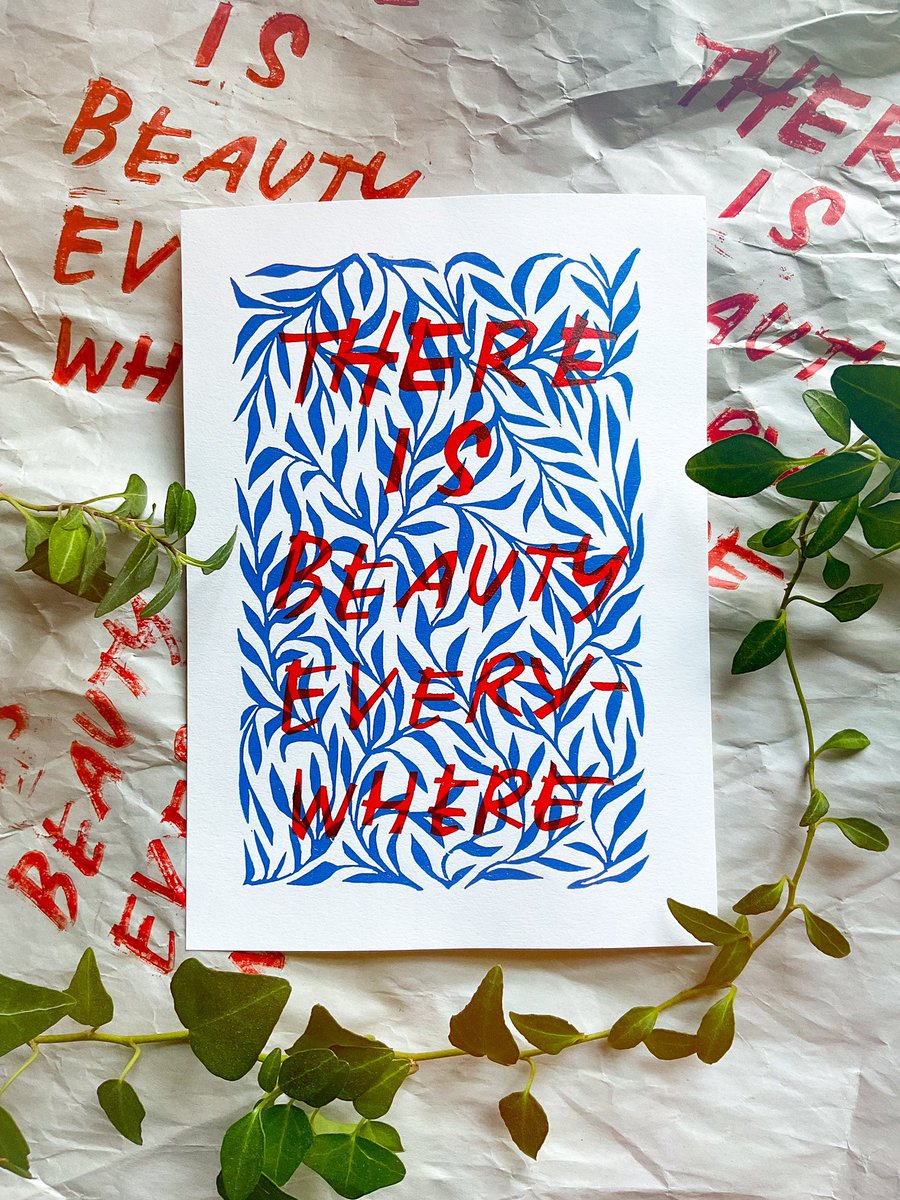 IS
BEAUTY
EV
WH
THERE
IS
AUTY
THERE
IS
BEAUTY
EVERY-
WHERE
BEAUTY
EVE